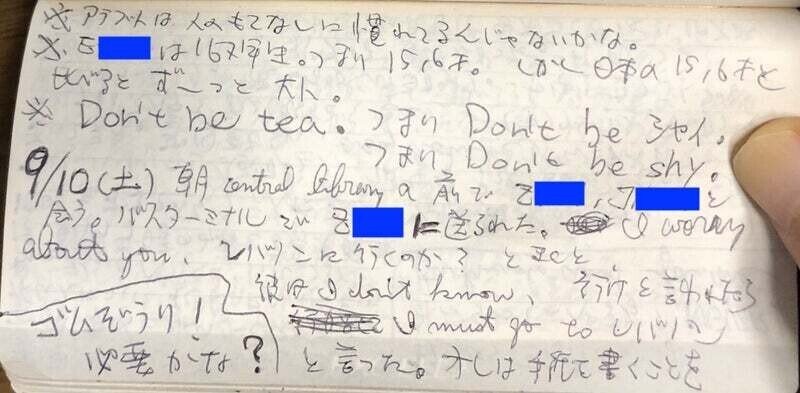 ※ アラブ人は人のもてなしに慣れてるんじゃないかな。
※ E は 年生。つまり 15,6才。しかし日本の15,6才と
比べると ず〜っと 大人。
※ Don't be tea。つまり Don't be シャイ。
つまり Don't be shy。
9/10(土) 朝 central library の前で Z 、J と
会う。バスターミナルで Z に送られた。I worry
about you、レバノンに行くのか？ ときくと
彼は I don't know、 と言われたら
I must go to レバノン
と言った。オレは手紙を書くことを
ゴムぞうり!
必要かな？